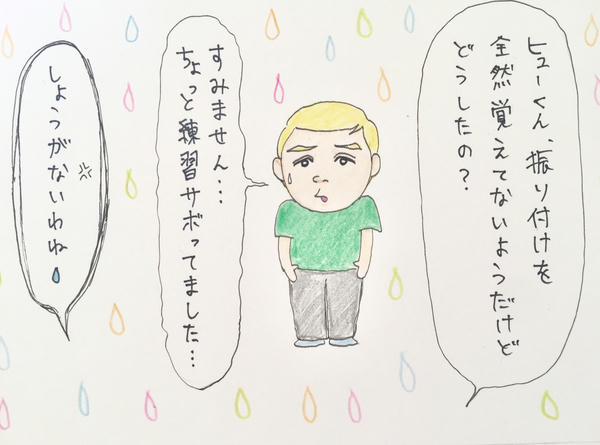 ヒューくん、振り付けを
全然覚えてないようだけど
どうしたの？
すみません…
ちょっと練習サボってました…
しょうがないわね